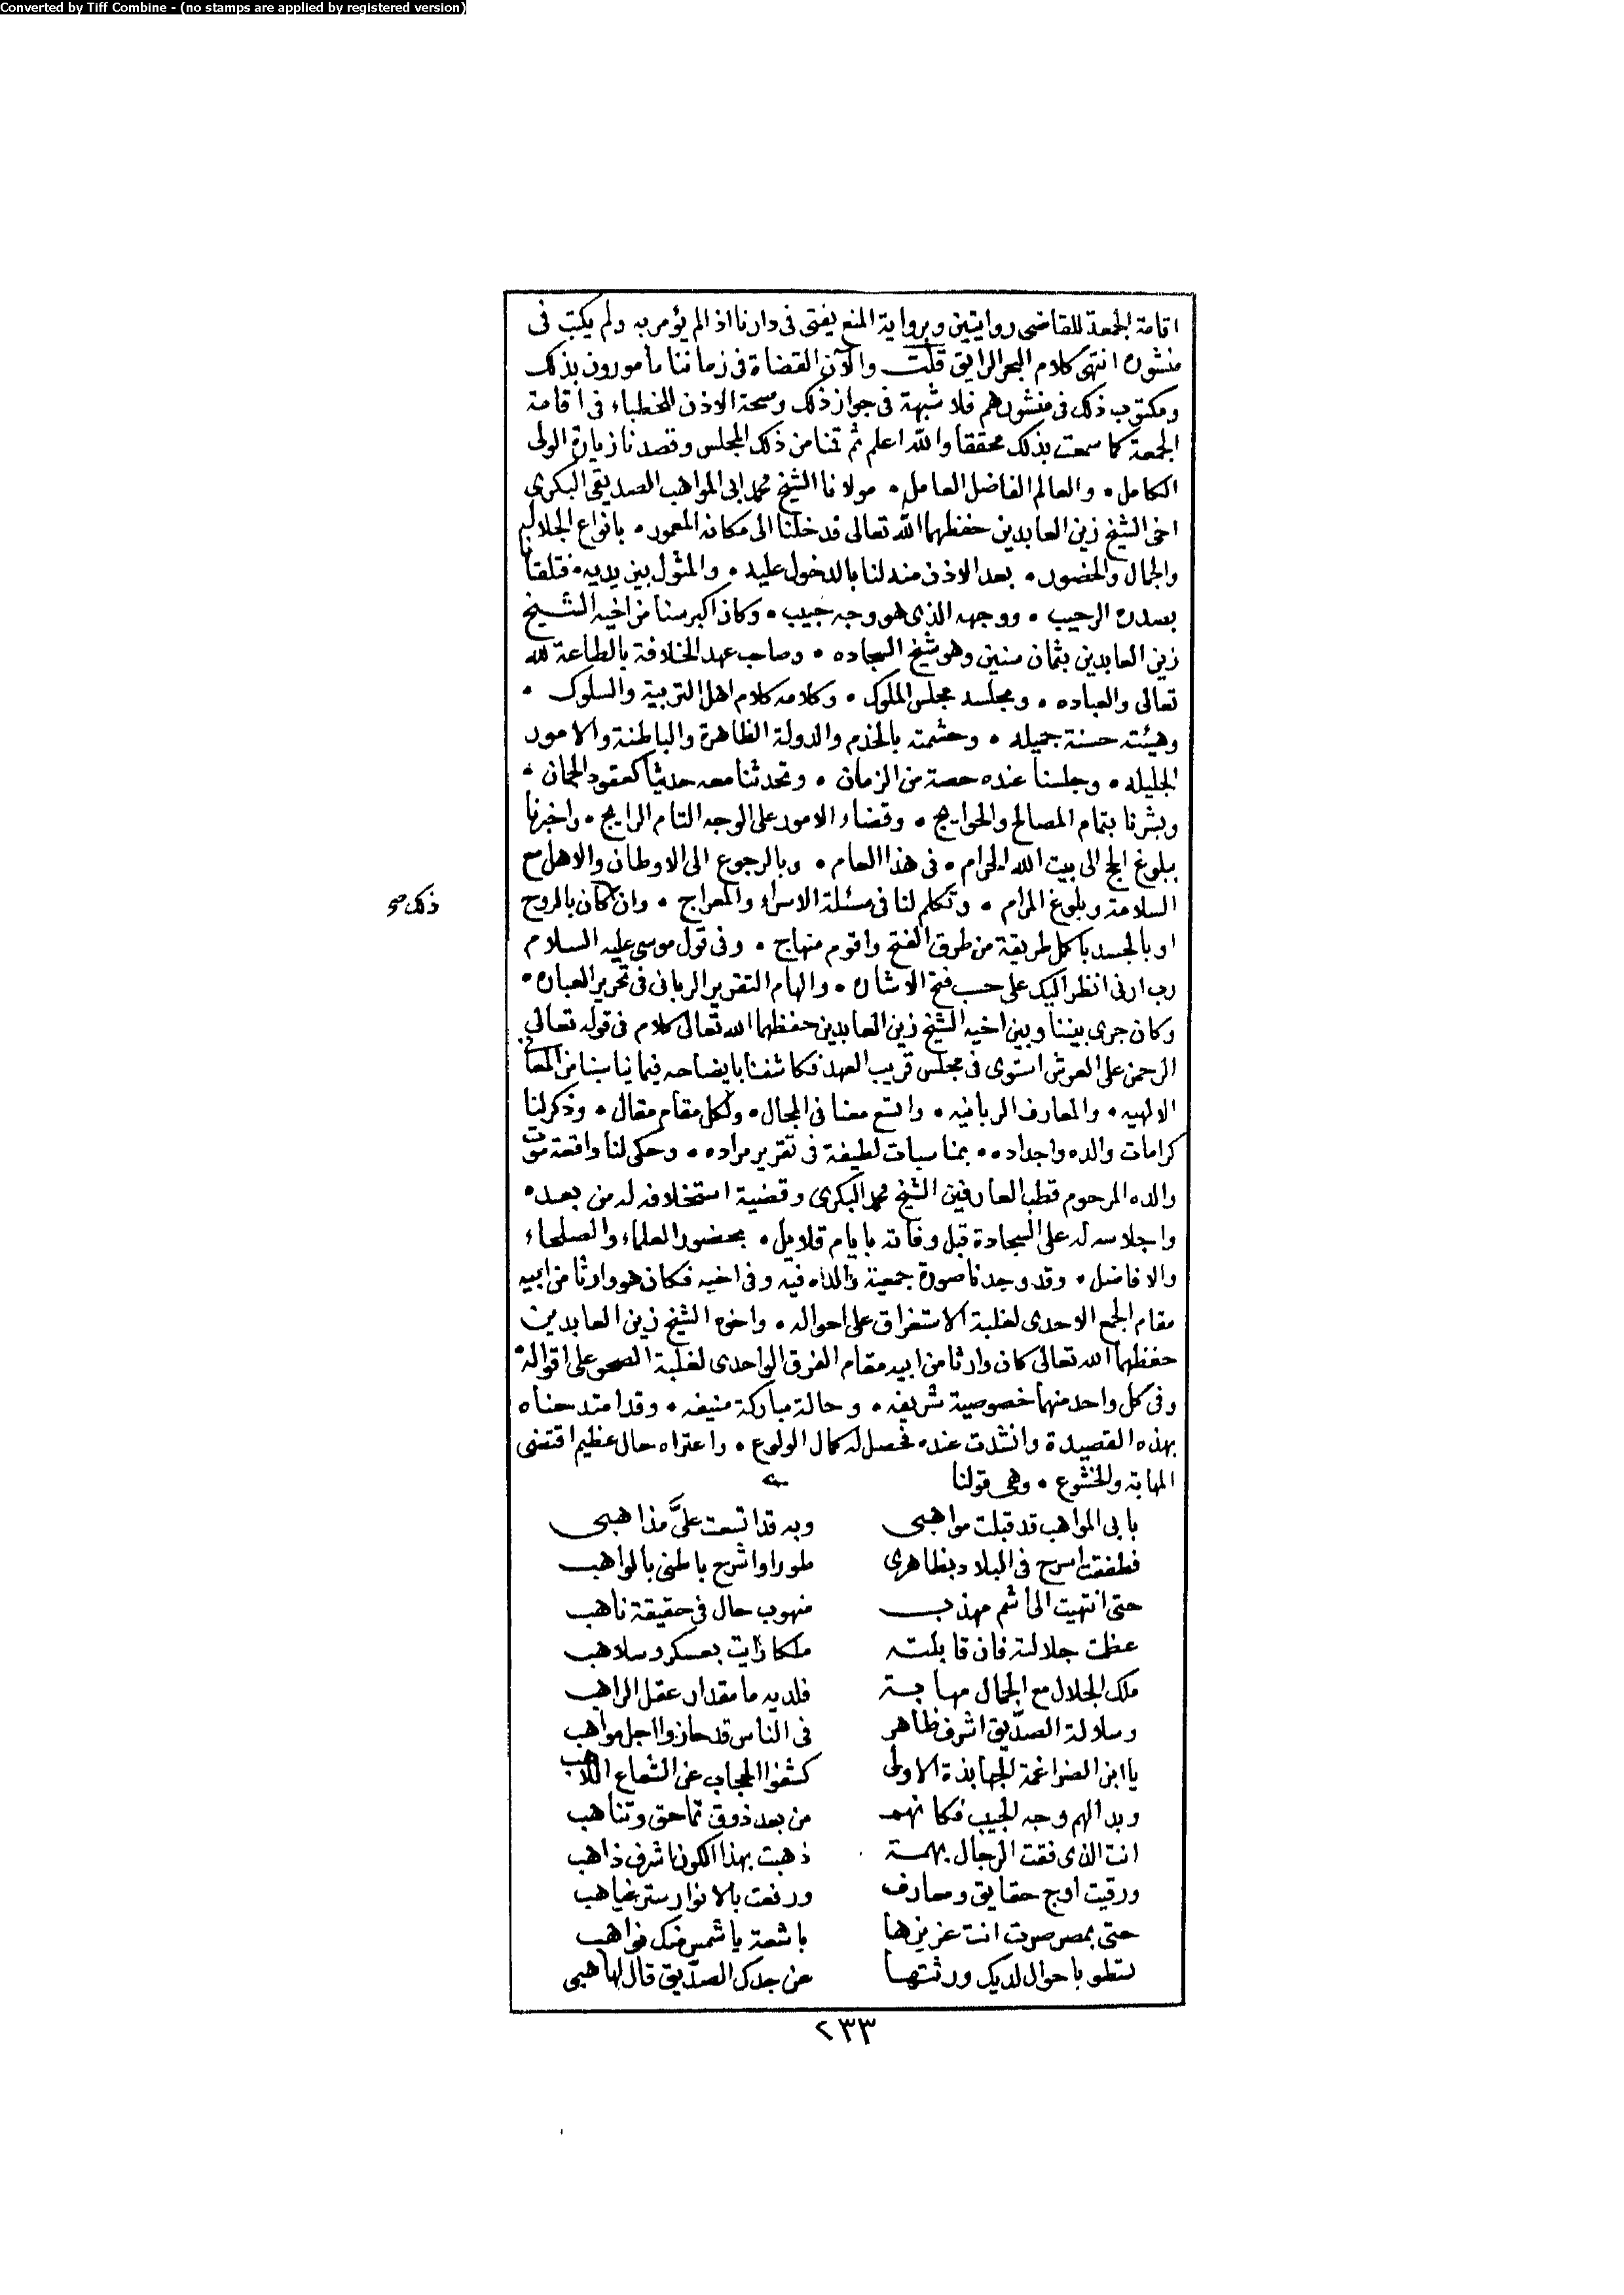 Converted by Tiff Combine - (no stamps are applied by registered version)
اقامة الجمعة للقاضى روايتين وبرواية المنع يفتى فى دارنا اذا لم يؤمر به ولم يكتب فى
منشوره انتهى كلام البحر الرايق قلت والآن القضاة فى زماننا مأمورون بذلك
ومكتوب ذلك فى منشورهم فلا شبهة فى جواز ذلك وصحة الاذن للخطباء فى اقامة
الجمعة كما سمعت بذلك محققا والله اعلم ثم قمنا من ذلك المجلس وقصدنا زيارة الولى
الكامل • والعالم الفاضل العامل • مولانا الشيخ محمد ابى المواهب الصديقى البكرى
اخى الشيخ زين العابدين حفظهما الله تعالى فدخلنا الى مكانه المعمور • بانواع الجلال
والجمال والحضور • بعد الاذن منه لنا بالدخول عليه • والمثول بين يديه • فتلقانا
بصدره الرحيب • ووجهه الذى هو وجه حبيب • وكان اكبر سنا من اخيه الشيخ
زين العابدين بثمان سنين وهو شيخ السجاده • وصاحب عهد الخلافة بالطاعة لله
تعالى والعباده • ومجلسه مجلس الملوك • وكلامه كلام اهل التربية والسلوك •
وهيئته حسنة جميله • وحشمته بالخدم والدولة الظاهرة والباطنة والامور
الجليله • وجلسنا عنده حصة من الزمان • وتحدثنا معه حديثا كعقود الجمان •
وبشرنا بتمام المصالح والحوايج • وقضاء الامور على الوجه التام الرايج • واخبرنا
ببلوغ الحج الى بيت الله الحرام • فى هذا العام • وبالرجوع الى الاوطان والاهل مع
السلامة وبلوغ المرام • وتكلم لنا فى مسئلة الاسراء والمعراج • وان كان بالروح
ذلك صح
او بالجسد باكمل طريقة من طرق الفتح واقوم منهاج • وفى قول موسى عليه السلام
رب ارنى انظر اليك على حسب فتح الاشاره • والهام التقرير الربانى فى تحرير العباره •
وكان جرى بيننا وبين اخيه الشيخ زين العابدين حفظهما الله تعالى كلام فى قوله تعالى
الرحمن على العرش استوى فى مجلس قريب العهد فكاشفنا بايضاحه فيما يناسبنا من المعانى
الالهيه • والمعارف الربانيه • واتسع معنا فى المجال • ولكل مقام مقال • وذكر لنا
كرامات والده واجداده • بمناسبات لطيفة فى تقرير مراده • وحكى لنا واقعة موت
والده المرحوم قطب العارفين الشيخ محمد البكرى وقضية استخلافه له من بعده
واجلاسه له على السجادة قبل وفاته بايام قلايل • بحضور العلماء والصلحاء
والافاضل • وقد وجدنا صورة جمعية والده فيه وفى اخيه فكان هو وارثا من ابيه
مقام الجمع الاحدى لغلبة الاستغراق على احواله • واخوه الشيخ زين العابدين
حفظهما الله تعالى كان وارثا من ابيه مقام الفرق الواحدى لغلبة الصحو على اقواله •
وفى كل واحد منهما خصوصية شريفه • وحالة مباركة منيفه • وقد امتدحناه
بهذه القصيدة وانشدت عنده فحصل له كمال الولوع • واعتراه حال عظيم اقتضى
المهابة والخشوع • وهى قولنا
بابى المواهب قد قبلت مواهبى وبه قد اتسعت علىَّ مذاهبى
فطفقت اسرح فى البلاد بظاهرى طورا واشرح باطنى بالمواهب
حتى انتهيت الى اشم مهذب منهوب حال فى حقيقة ناهب
عظمت جلالته فان قابلته ملكا رايت بعسكر وسلاهب
ملك الجلال مع الجمال مهابة فلديه ما مقدار عقل الراهب
وسلالة الصدّيق اشرف ظاهر فى الناس قد حازوا اجل مواهب
يا ابن الضراغمة الجهابذة الاولى كشفوا الحجاب عن الشعاع اللاهب
وبدا لهم وجه الحبيب فكانهم من بعد ذوق تماحق وتناهب
انت الذى فقت الرجال بهمة ذهبت بهذا الكون اشرف ذاهب
ورقيت اوج حقايق ومعارف ورفعت بالانوار ستر غياهب
حتى بمصر صرت انت عزيزها باشعة يا شمس منك نواهب
تسطو باحوال لديك ورثتها عن جدك الصدّيق قال لها هبى
٢٣٣